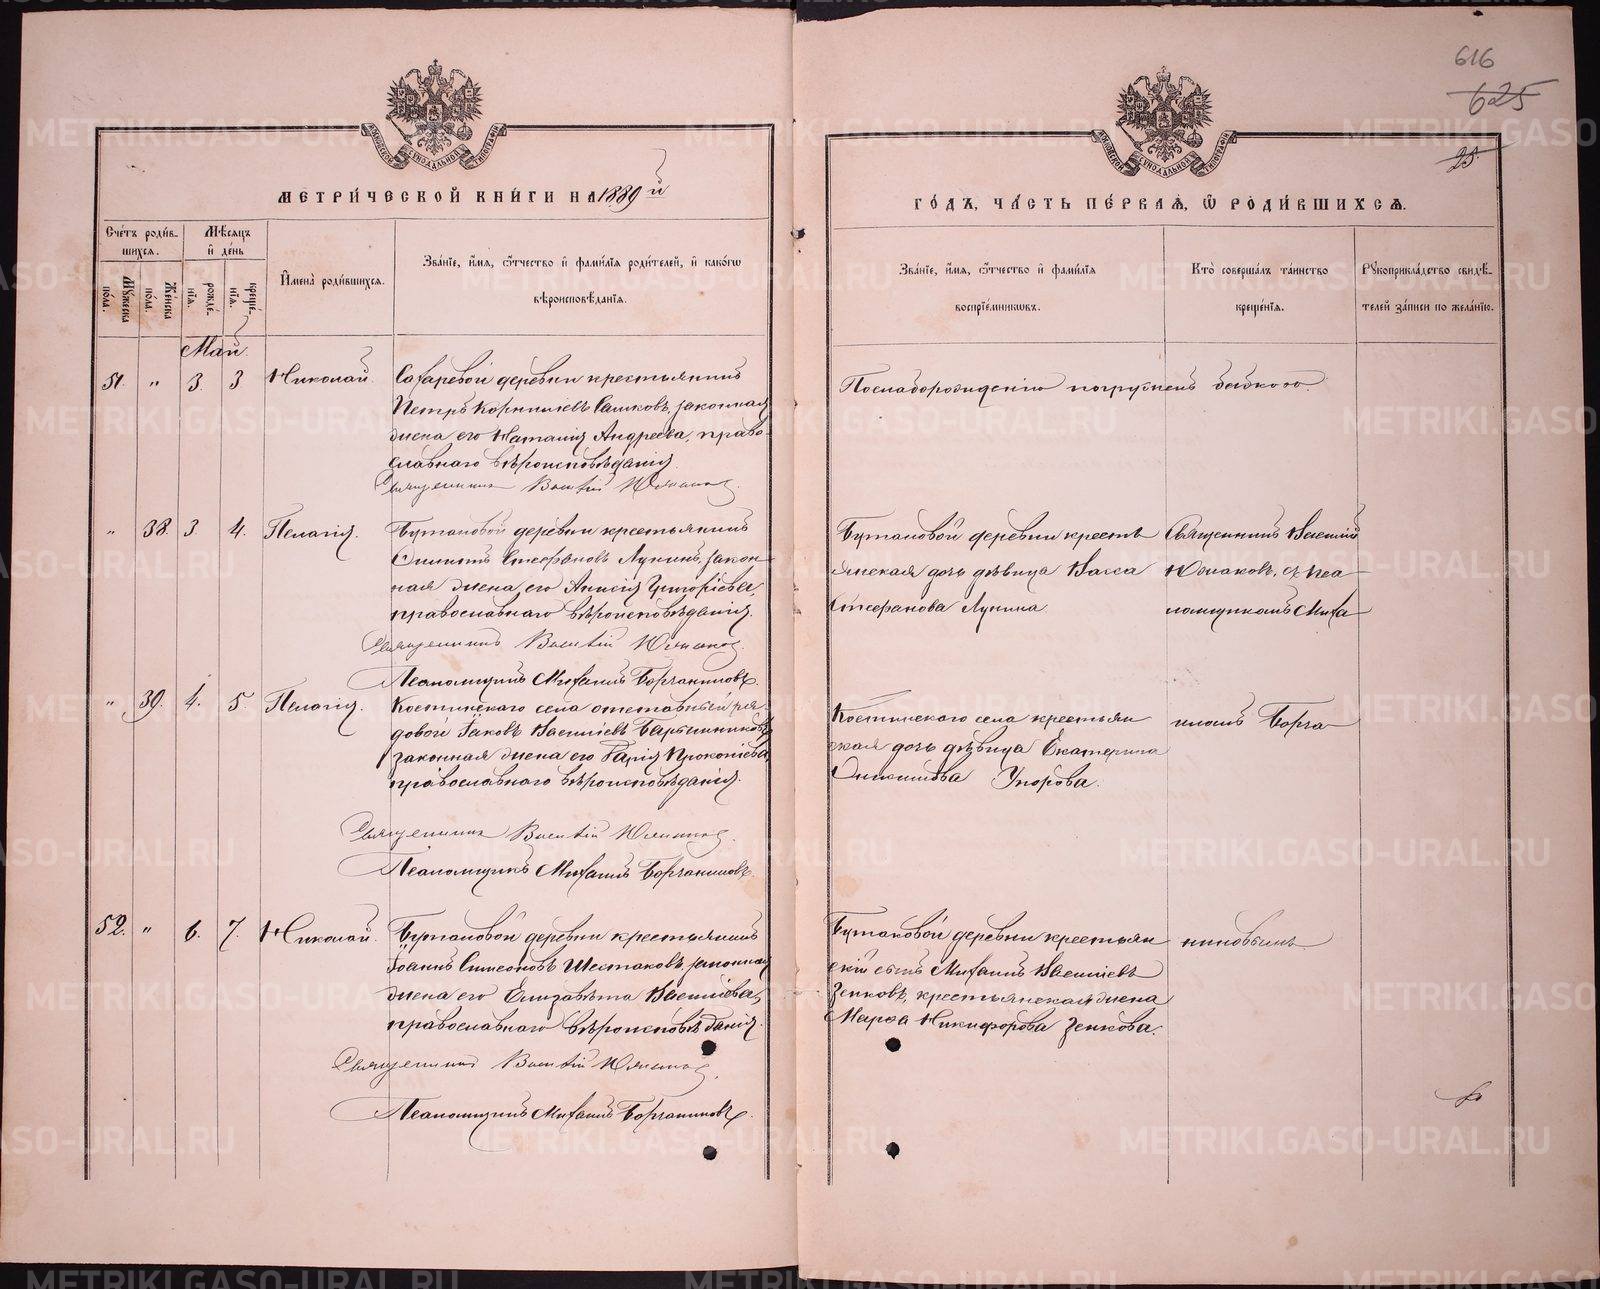 616
625
25.
МЕТРИ́ЧЕСКОЙ КНИ́ГИ НА 1889 й
ГО́ДЪ, ЧА́СТЬ ПЕ́РВАѦ, Ѡ РОДИ́ВШИХСѦ.
Сче́тъ роди́в-
шихсѧ.
Мꙋ́жеска
по́ла.
Же́нска
по́ла.
Мѣ́сѧцъ
и҆ де́нь
рожде́-
нїѧ.
креще́-
нїѧ.
И҆мена̀ роди́вшихсѧ.
Зва́нїе, и҆́мѧ, ѻ҆́тчество и҆ фами́лїѧ роди́телей, и҆ како́гѡ
вѣроисповѣ́данїѧ.
Зва́нїе, и҆́мѧ, ѻ҆́тчество и҆ фами́лїѧ
воспрїе́мникѡвъ.
Кто̀ соверша́лъ та́инство
креще́нїѧ.
Рꙋкоприкла́дство свидѣ́-
телей за́писи по жела́нїю.
Май.
51. " 3. 3 Николай.
деревни крестьянинъ
Петръ Корниліевъ законная
жена его Наталія Андреева, право-
славнаго вѣроисповѣданія.
Священникъ Василій Южаков.
По слаборожденію погруженъ бабкою.
" 38. 3. 4. Пелагія.
Бутаковой деревни крестьянинъ
Стефановъ Лунинъ, закон-
ная жена его Анисія Григоріева,
православнаго вѣроисповѣданія.
Священникъ Василій Южаков.
Псаломщикъ Михаилъ Борчаниновъ.
Бутаковой деревни кресть
янская дочь дѣвица Васса
Стефанова Лунина
Священникъ Василій
Южаковъ, съ Пса
ломщикомъ Миха
" 39. 4. 5. Пелагія.
Костинскаго села отставный ря
довой Іаковъ Василіевъ
законная жена его Прокопіева,
православнаго вѣроисповѣданія.
Священникъ Василій Южаков.
Псаломщикъ Михаилъ Борчаниновъ.
Костинскаго села крестьян
ская дочь дѣвица Екатерина
Упорова.
иломъ Борча
52. " 6. 7. Николай.
Бутаковой деревни крестьянинъ
Іоаннъ Симеоновъ Шестаковъ, законная
жена его Елизавета Василіева,
православнаго вѣроисповѣданія.
Священникъ Василій Южаков.
Псаломщикъ Михаилъ Борчаниновъ.
Бутаковой деревни крестьян
скій сынъ Михаилъ Василіевъ
Зенковъ, крестьянская жена
Марѳа Никифорова Зенкова.
ниновымъ
METRIKI.GASO-URAL.RU